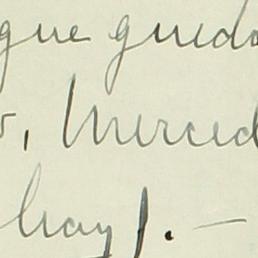 gue queda
, Merced
hay). —